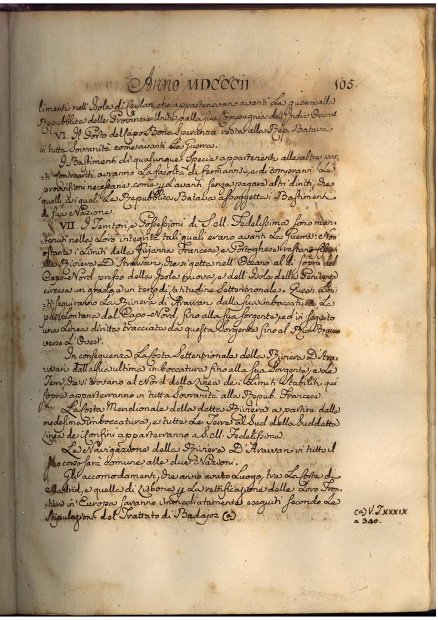 Anno MDCCCII
105
limenti nell'Isola di Ceylan, che appartenevano avanti La guerra alla
Repubblica delle Provincie Unite, o alla sua Compagnia dell'Indie Orient
VI. Il Porto del Capo di Bona Speranza resta alla Rep. Batava
in tutta Sovranità come avanti La Guerra.
I Bastimenti di qualunque Specie appartenenti alle altre par-
ti Contraenti avranno La facoltà di fermarvisi, e di comprarvi Le
provvisioni necessarie, come p. l'avanti senza pagare altri diritti, che
quelli, ai quali La Repubblica Batava assoggetta i Bastimenti
di sua Nazione
VII. I Territorj, e Possessioni di S. M. Fedelissima sono man-
tenuti nella loro integrità, tali quali erano avanti La Guerra: Non
ostante i Limiti delle Gujanna Francese, e Portoghese
alla Riviera D'Arawari, che si getta nell'Oceano al di sopra del
Capo-Nord presso della Isola nuova, e dell'Isola della Penitenza
circa un grado, e un terzo di Latitudine Settentrionale. Questi Limi-
ti seguiranno La Riviera di Arawari dalla sua imboccatura La
più lontana dal Capo-Nord, fino alla sua Sorgente, ed in seguito
una Linea diritta tracciata da questa Sorgente fino al Rio Branco
verso L'Ovest.
In conseguenza La Costa Settentrionale della Riviera D'Ara-
wari dalla sua ultima imboccatura fino alla sua Sorgente, e Le
Terre, che si trovano al Nord della Linea de' Limiti Stabiliti qui
sopra apparterranno in tutta Sovranità alla Repub. Francese.
La Costa Meridionale della detta Riviera a partire dalla
medesima imboccatura, e tutte Le Terre al Sud della suddetta
Linea dei Confini apparterranno a S. M. Fedelissima.
La Navigazione della Riviera D'Arawari in tutto il
suo corso sarà comune alle due Nazioni.
Gli accomodamenti, che anno avuto Luogo, tra La Corte di
Madrid, e quella di Lisbona p. La rettificazione delle Loro Fron-
tiere in Europa saranno immediatamente eseguiti secondo Le
Stipulazioni del Trattato di Badajoz (a)
(a) V. T. XXXIX
a 340.